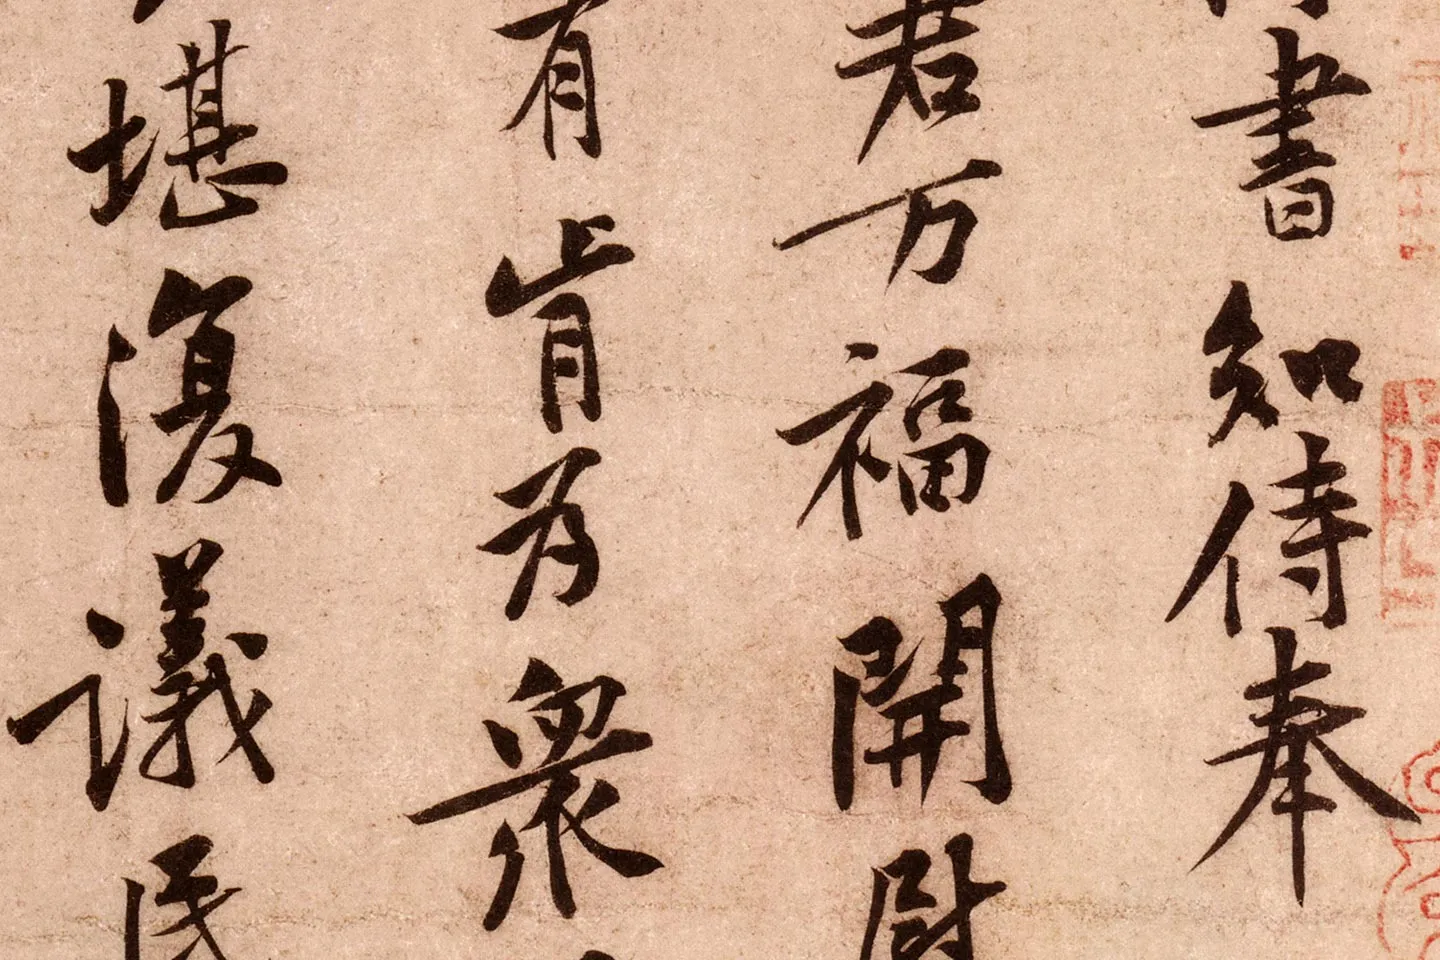 書知侍奉
君万福開慰
有肯為衆
堪復議民